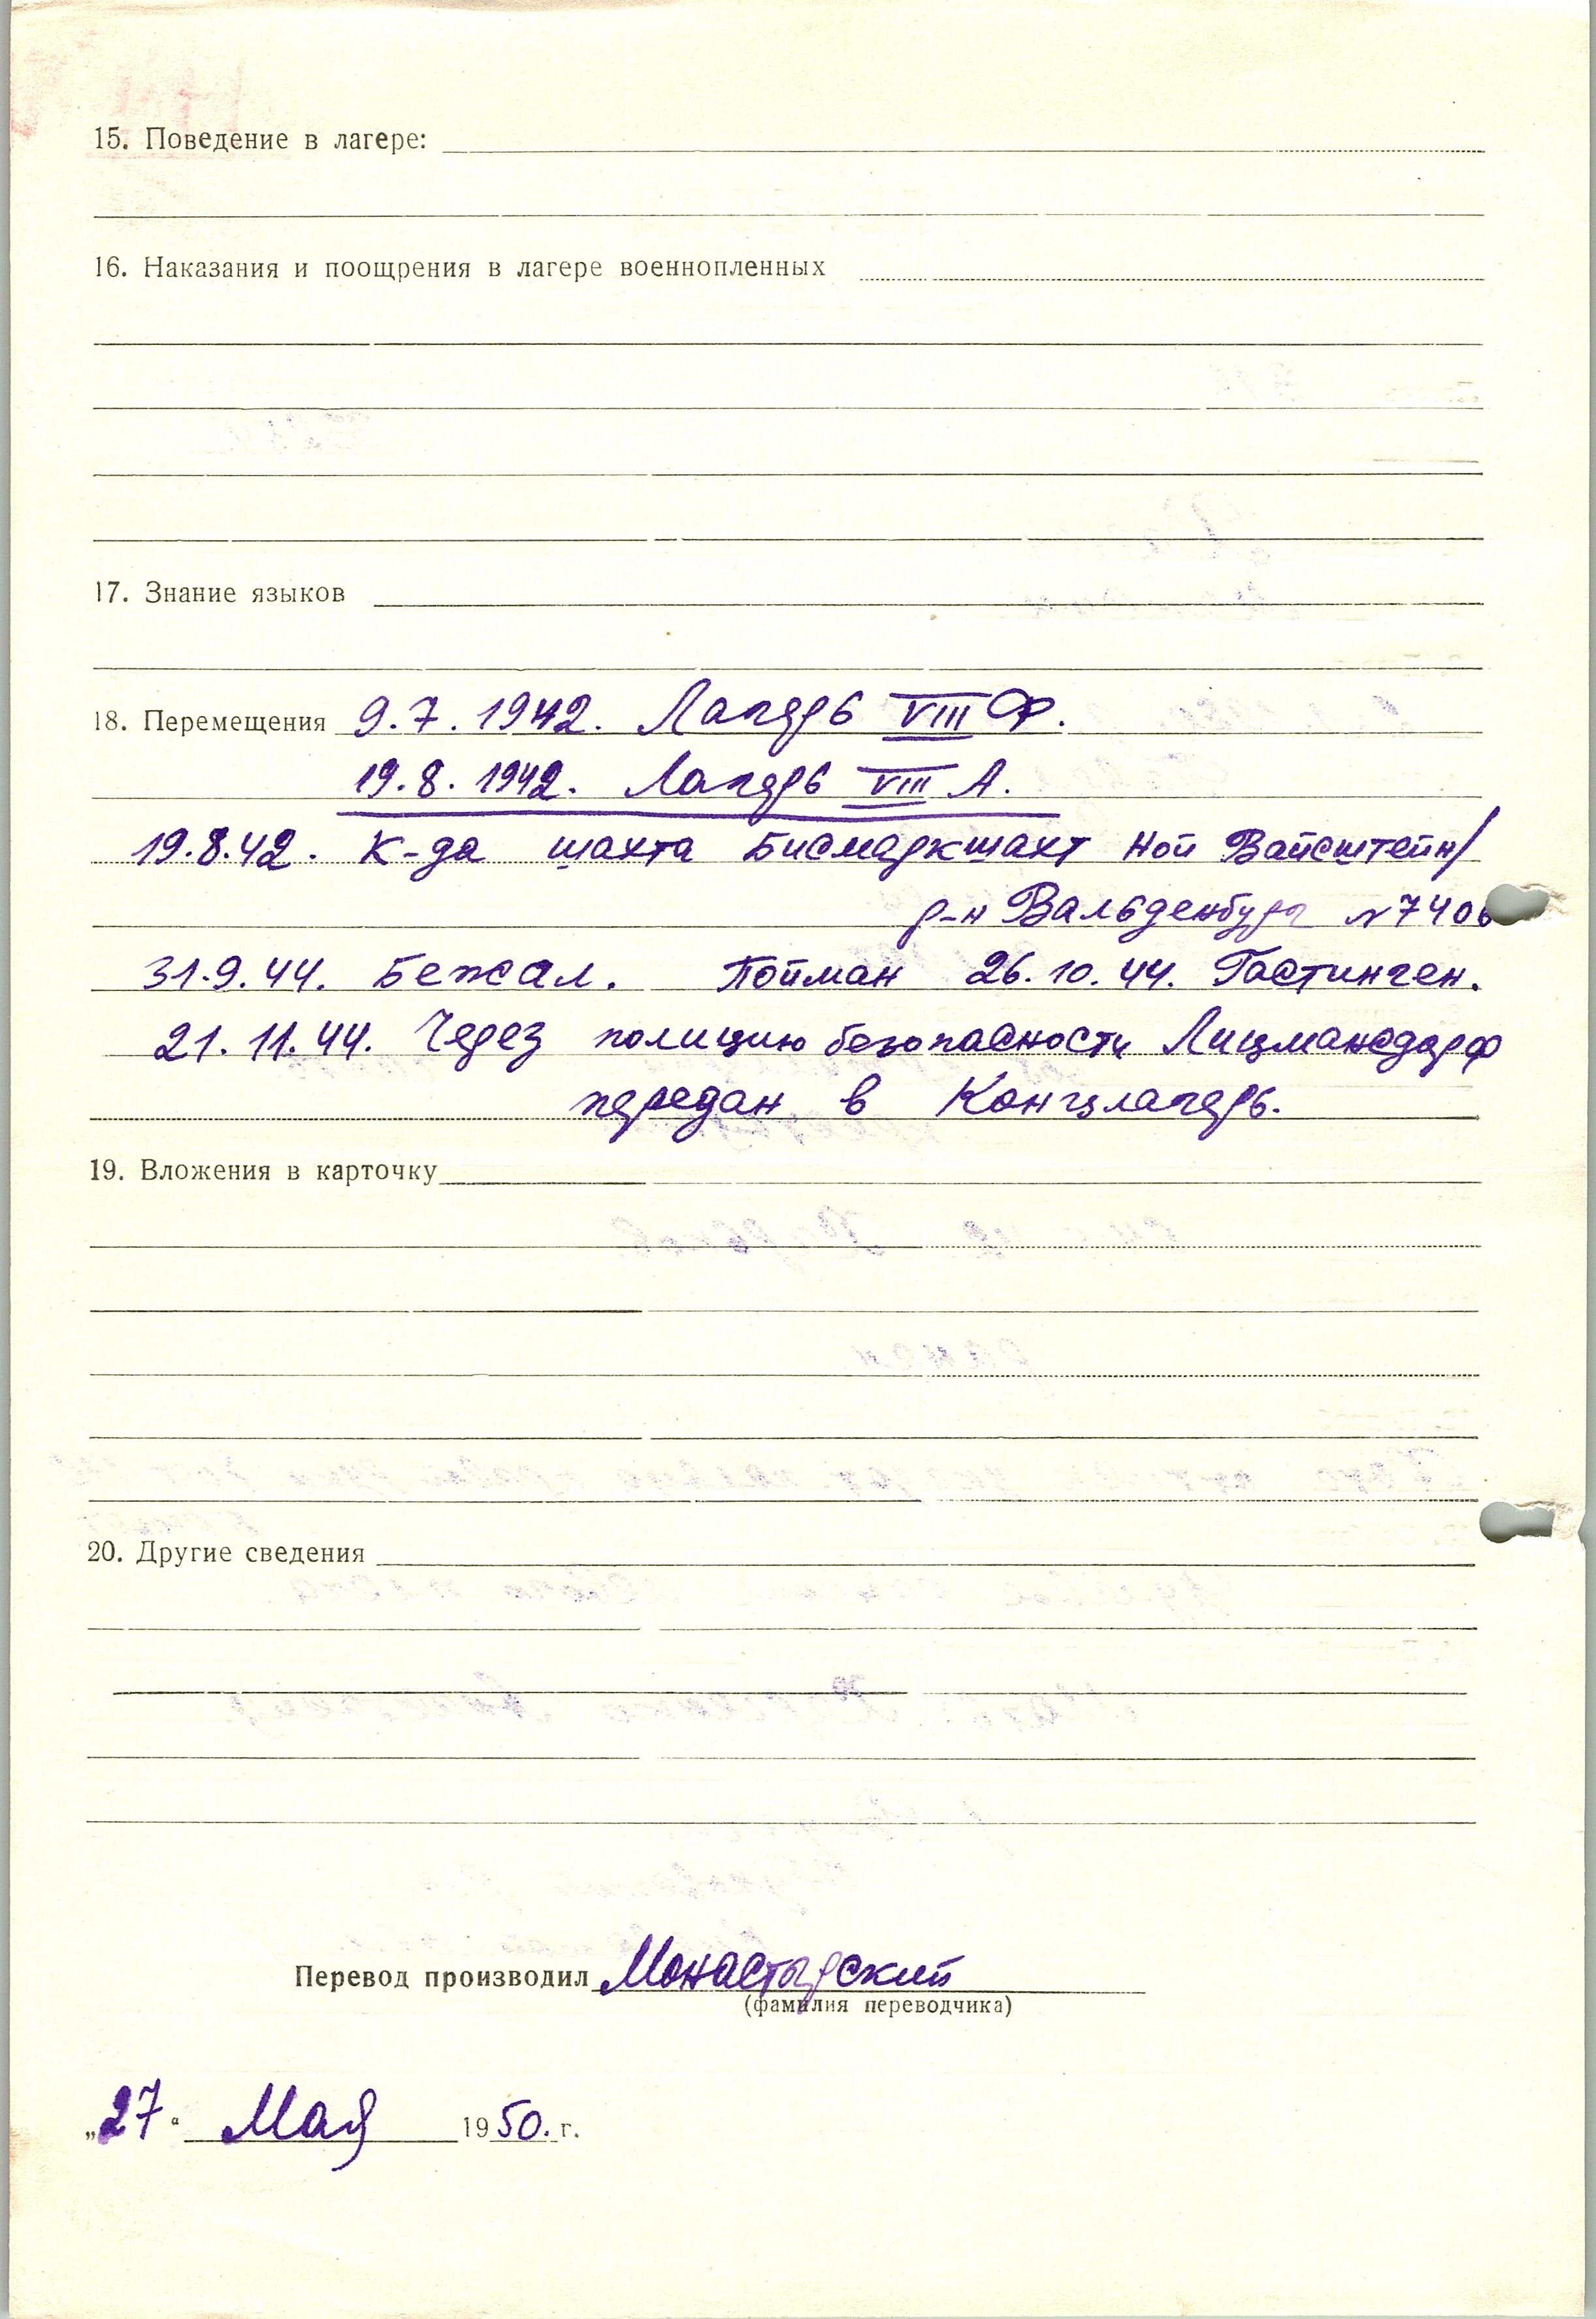 15. Поведение в лагере:
16. Наказания и поощрения в лагере военнопленных
17. Знание языков
18. Перемещения 9.7.1942. Лагерь VIII Ф.
19.8.1942. Лагерь VIII А.
19.8.42. К-да шахта Бисмаркшахт Ной Вайсштейн/
р-н Вальденбург № 7406
31.9.44. Бежал. Пойман 26.10.44. Гастинген.
21.11.44. Через полицию безопасности Лицмансдорф
передан в Концлагерь.
19. Вложения в карточку
20. Другие сведения
Перевод производил Монастырский
(фамилия переводчика)
„27“ Мая 1950. г.